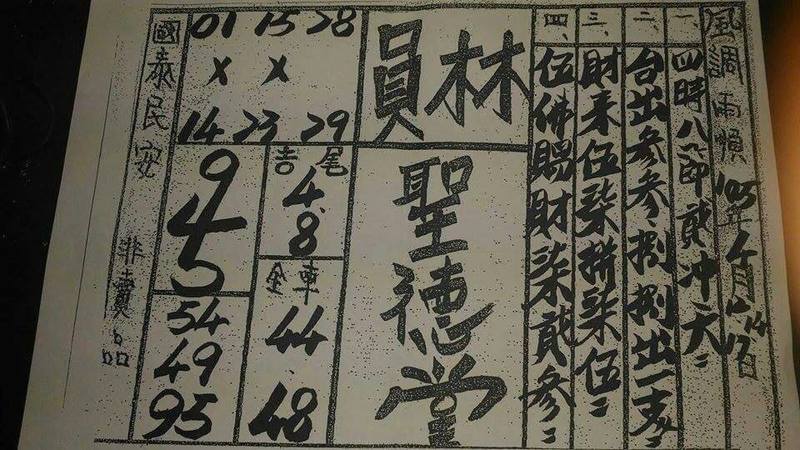 風調雨順 105年4月14-17日
一、四時八節貳冲天
二、台出參參捌捌出一支
三、財来伍柒聯柒伍
四、伍佛賜財柒貳參
員林
聖德堂
01 15 28
x x
14 23 29
吉尾
4.8
全車
44.48
9
45
54
49
95
國泰民安 非賣品